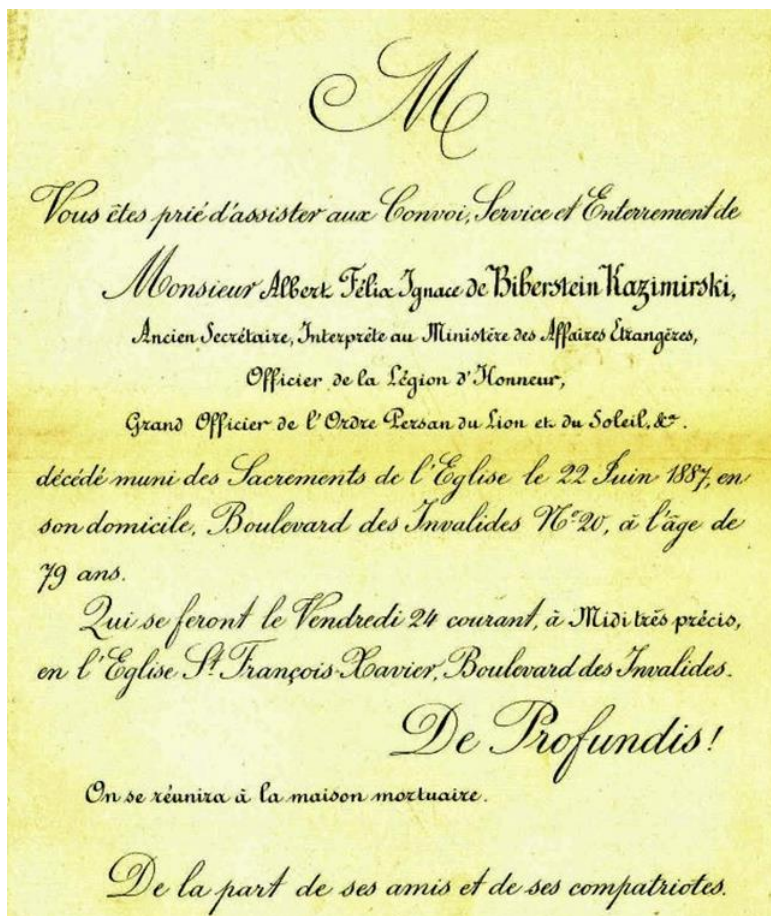 M
Vous êtes prié d'assister aux Convoi, Service et Enterrement de
Monsieur Albert Félix Ignace de Biberstein Kazimirski,
Ancien Secrétaire, Interprète au Ministère des Affaires Etrangères,
Officier de la Légion d'Honneur,
Grand Officier de l'Ordre Persan du Lion et du Soleil, &a.
décédé muni des Sacrements de l'Eglise le 22 Juin 1887, en
son domicile, Boulevard des Invalides No 20, à l'âge de
79 ans.
Qui se feront le Vendredi 24 courant, à Midi très précis,
en l'Eglise St François-Xavier, Boulevard des Invalides.
De Profundis!
On se réunira à la maison mortuaire.
De la part de ses amis et de ses compatriotes.